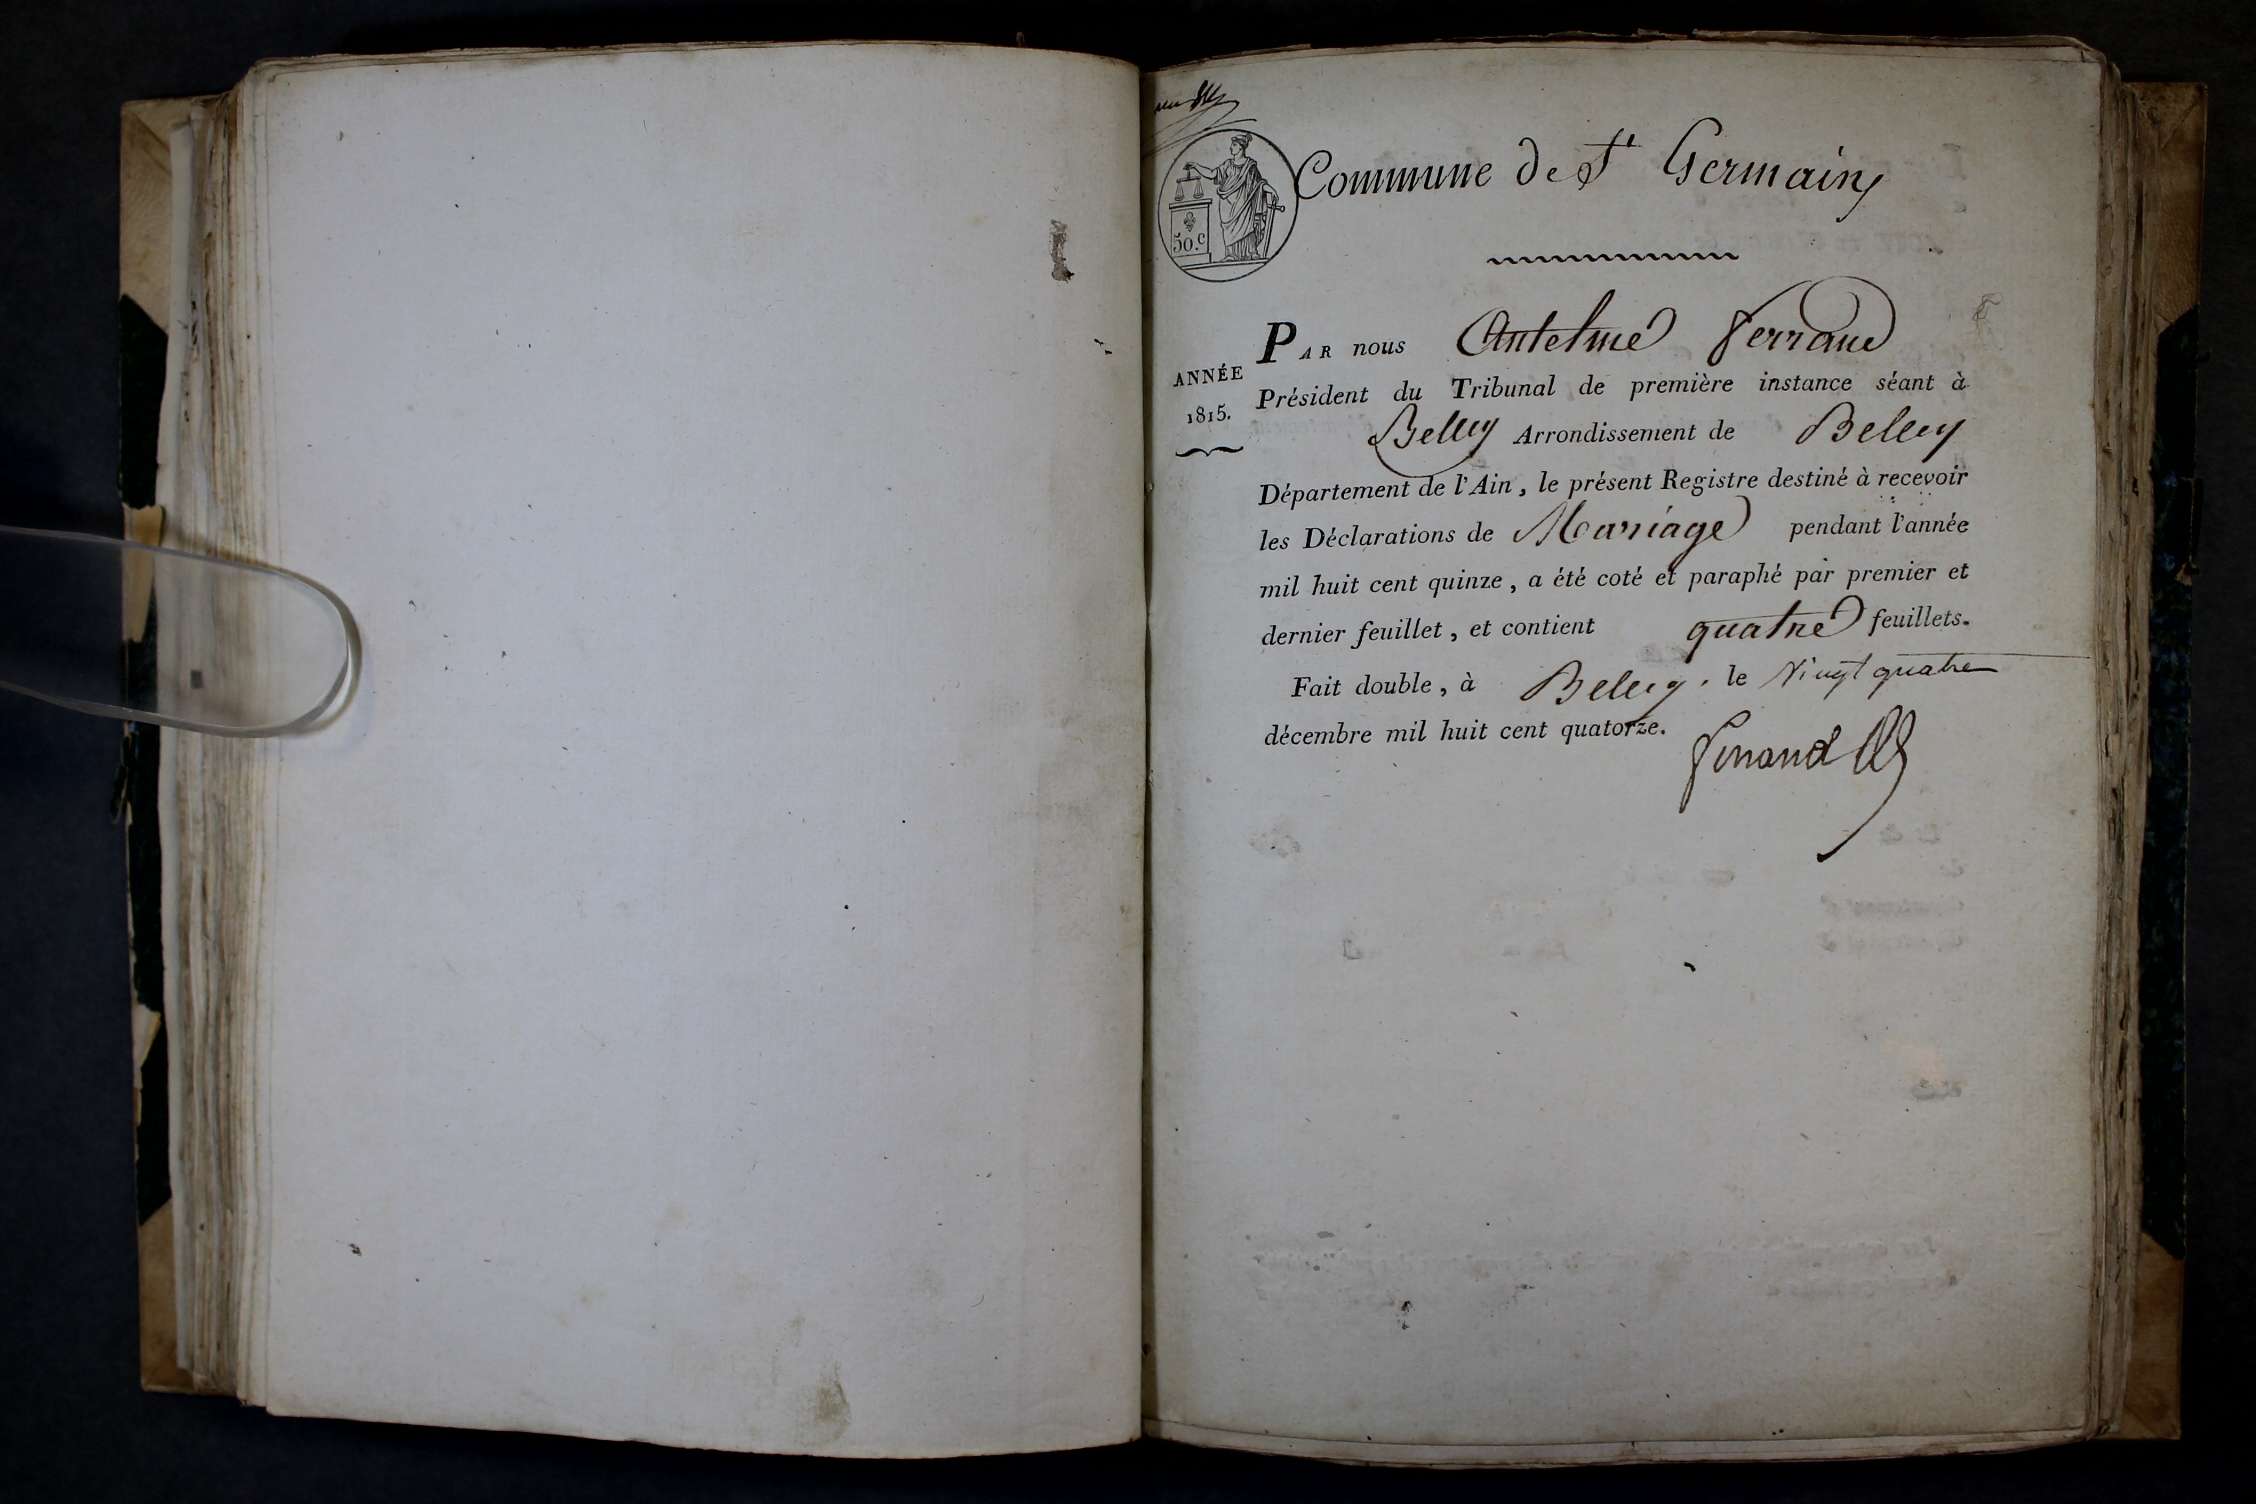 Commune de St Germain
50.c
ANNÉE
1815.
PAR nous Antelme Ferrand
Président du Tribunal de première instance séant à
Belley Arrondissement de Belley
Département de l'Ain, le présent Registre destiné à recevoir
les Déclarations de Mariage pendant l'année
mil huit cent quinze, a été coté et paraphé par premier et
dernier feuillet, et contient quatre feuillets.
Fait double, à Belley. le Vingt quatre
décembre mil huit cent quatorze.
Ferrand